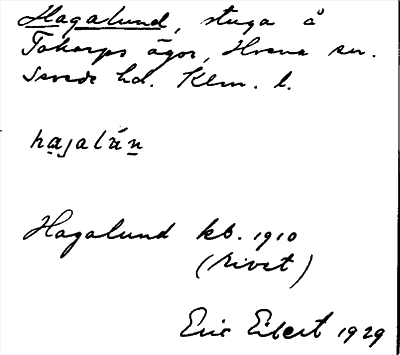 Hagalund, stuga å
Tokarps ägor, Hvena sn.
Sevede hd. Klm. l.
hagalún
Hagalund kb. 1910
(rivet)
Eric Elbert 1929